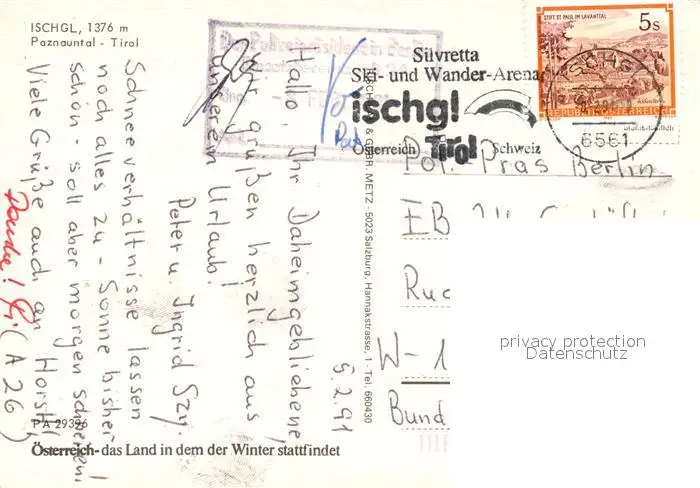 ISCHGL, 1376 m
Paznauntal - Tirol
Der Polizeipräsident in Berlin
Silvretta
Ski- und Wander-Arena
ischgl
Tirol
Österreich
Schweiz
STIFT ST. PAUL IM LAVANTTAL
5s
REPUBLIK ÖSTERREICH
ISCHGL
6561
Hallo Ihr Daheimgebliebene,
wir grüßen herzlich aus
unserem Urlaub!
Peter u. Ingrid Szy.
Schneeverhältnisse lassen
noch alles zu - Sonne bisher
schön - soll aber morgen schneien!
Viele Grüße auch an Horst!
(A 26)
Danke!
5.2.91
& GEBR. METZ - 5023 Salzburg, Hannakstrasse, 1 - Tel. 660430
Pol. Präs Berlin
EB
Ruc
W-1
Bund
privacy protection
Datenschutz
PA 29396
Österreich - das Land in dem der Winter stattfindet